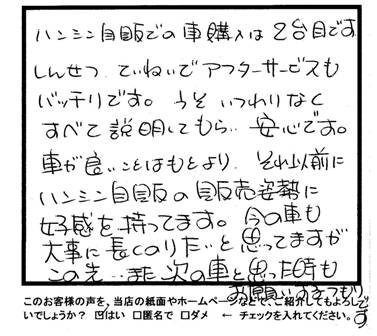 ハンシン自販での車購入は2台目です
しんせつ ていねいでアフターサービスも
バッチリです。 うそ いつわりなく
すべて説明してもらい 安心です。
車が良いことはもとより、それ以前に
ハンシン自販の販売姿勢に
好感を持ってます。今の車も
大事に長くのりたいと思ってますが
この先…また次の車と思った時も
お願いするつもりです
このお客様の声を、当店の紙面やホームページなどで、ご紹介してもよろし
いでしょうか? ☑はい ☐匿名で ☐ダメ ← チェックを入れてください。